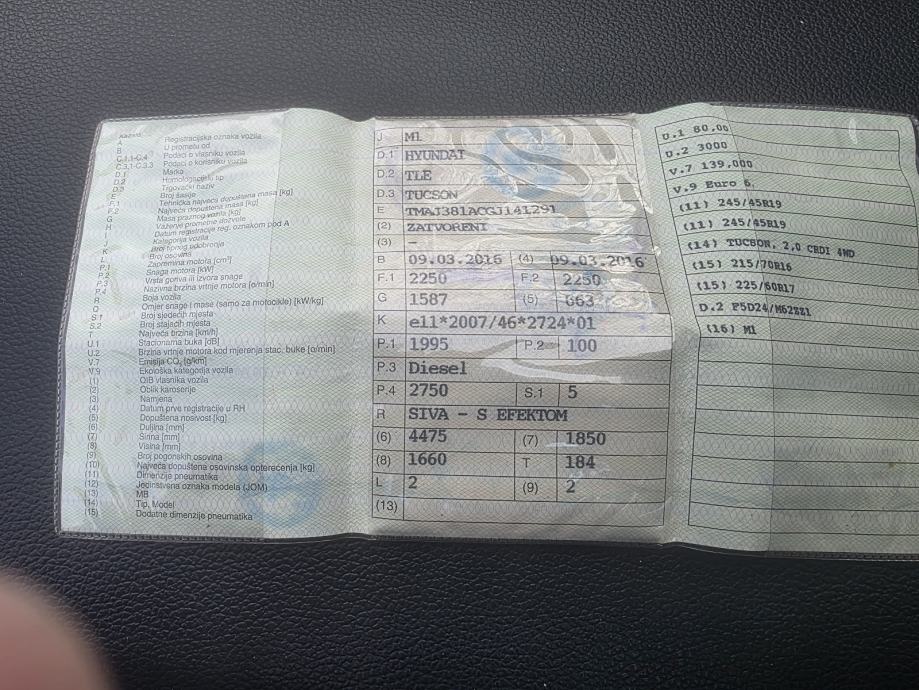 A Registracijska oznaka vozila
B U prometu od
C.1.1-C.4 Podaci o vlasniku vozila
C.3.1-C.3.3 Podaci o korisniku vozila
D.1 Marka
D.2 Homologacijski tip
D.3 Trgovački naziv
E Broj šasije
F.1 Tehnička najveća dopuštena masa [kg]
F.2 Najveća dopuštena masa [kg]
G Masa praznog vozila [kg]
H Važenje prometne dozvole
I Datum registracije reg. oznakom pod A
J Kategorija vozila
K Broj tipnog odobrenja
L Broj osovina
P.1 Zapremina motora [cm³]
P.2 Snaga motora [kW]
P.3 Vrsta goriva ili izvora snage
P.4 Nazivna brzina vrtnje motora [o/min]
R Boja vozila
Q Omjer snage i mase (samo za motocikle) [kW/kg]
S.1 Broj sjedećih mjesta
S.2 Broj stajaćih mjesta
T Najveća brzina [km/h]
U.1 Stacionarna buka [dB]
U.2 Brzina vrtnje motora kod mjerenja stac. buke [o/min]
V.7 Emisija CO₂ [g/km]
V.9 Ekološka kategorija vozila
(1) OIB vlasnika vozila
(2) Oblik karoserije
(3) Namjena
(4) Datum prve registracije u RH
(5) Dopuštena nosivost [kg]
(6) Duljina [mm]
(7) Širina [mm]
(8) Visina [mm]
(9) Broj pogonskih osovina
(10) Najveća dopuštena osovinska opterećenja [kg]
(11) Dimenzije pneumatika
(12) Jedinstvena oznaka modela (JOM)
(13) MB
(14) Tip, Model
(15) Dodatne dimenzije pneumatika
J M1
D.1 HYUNDAI
D.2 TLE
D.3 TUCSON
E TMAJ381ACGJ141291
(2) ZATVORENI
(3) –
B 09.03.2016 (4) 09.03.2016
F.1 2250 F.2 2250
G 1587 (5) 663
K e11*2007/46*2724*01
P.1 1995 P.2 100
P.3 Diesel
P.4 2750 S.1 5
R SIVA - S EFEKTOM
(6) 4475 (7) 1850
(8) 1660 T 184
L 2 (9) 2
(13)
U.1 80,00
U.2 3000
V.7 139,000
V.9 Euro 6
(11) 245/45R19
(11) 245/45R19
(14) TUCSON, 2,0 CRDI 4WD
(15) 215/70R16
(15) 225/60R17
D.2 F5D24/M62ZZ1
(16) M1